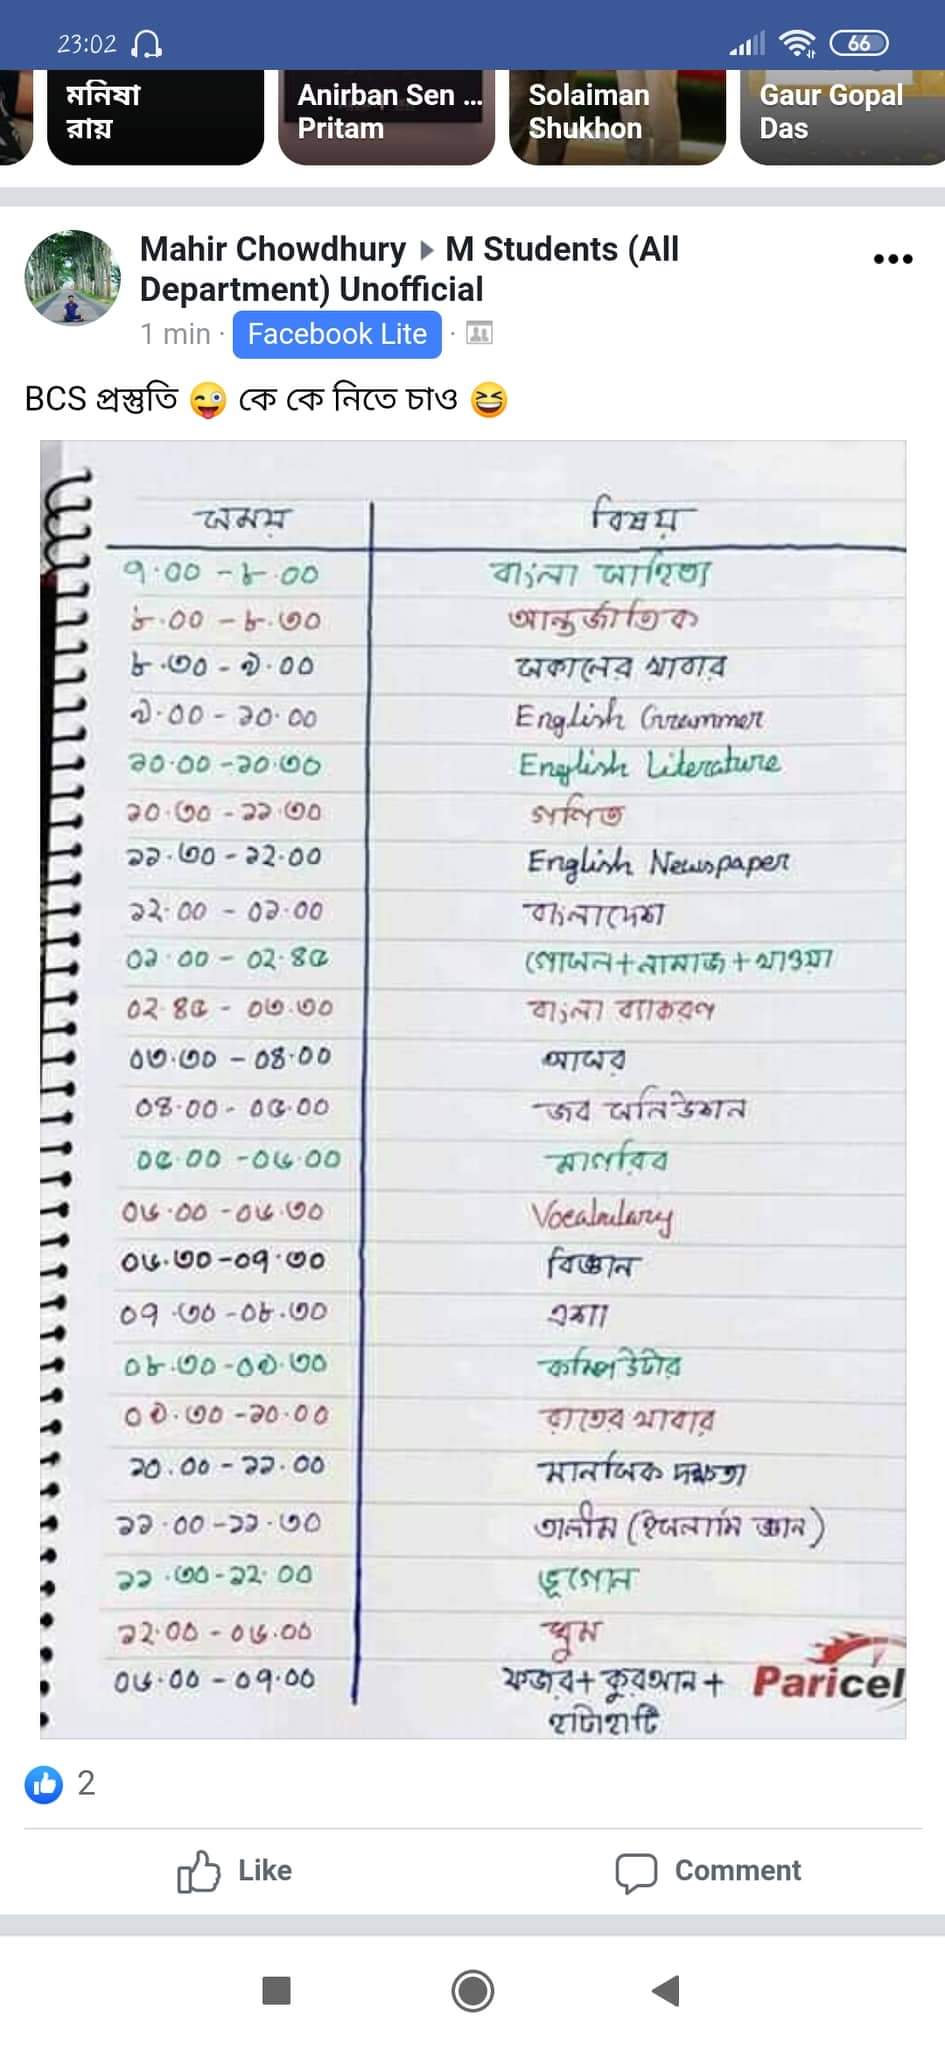 23:02
66
মনিষা রায়
Anirban Sen ... Pritam
Solaiman Shukhon
Gaur Gopal Das
Mahir Chowdhury ▸ M Students (All
Department) Unofficial
1 min · Facebook Lite ·
BCS প্রস্তুতি 😜 কে কে নিতে চাও 😆
সময় বিষয়
৭.০০ - ৮.০০ বাংলা সাহিত্য
৮.০০ - ৮.৩০ আন্তর্জাতিক
৮.৩০ - ৯.০০ সকালের খাবার
৯.০০ - ১০.০০ English Grammer
১০.০০ - ১০.৩০ English Literature
১০.৩০ - ১১.৩০ গণিত
১১.৩০ - ১২.০০ English Newspaper
১২.০০ - ০১.০০ বাংলাদেশ
০১.০০ - ০২.৪৫ গোসল+নামাজ+খাওয়া
০২.৪৫ - ০৩.৩০ বাংলা ব্যাকরণ
০৩.৩০ - ০৪.০০ আসর
০৪.০০ - ০৫.০০ জব সলিউশন
০৫.০০ - ০৬.০০ মাগরিব
০৬.০০ - ০৬.৩০ Vocabulary
০৬.৩০ - ০৭.৩০ বিজ্ঞান
০৭.৩০ - ০৮.৩০ এশা
০৮.৩০ - ০৯.৩০ কম্পিউটার
০৯.৩০ - ১০.০০ রাতের খাবার
১০.০০ - ১১.০০ মানসিক দক্ষতা
১১.০০ - ১১.৩০ তালীম (ইসলামি জ্ঞান)
১১.৩০ - ১২.০০ ভূগোল
১২.০০ - ০৬.০০ ঘুম
০৬.০০ - ০৭.০০ ফজর+ কুরআন +
হাটাহাটি
Paricel
2
Like
Comment